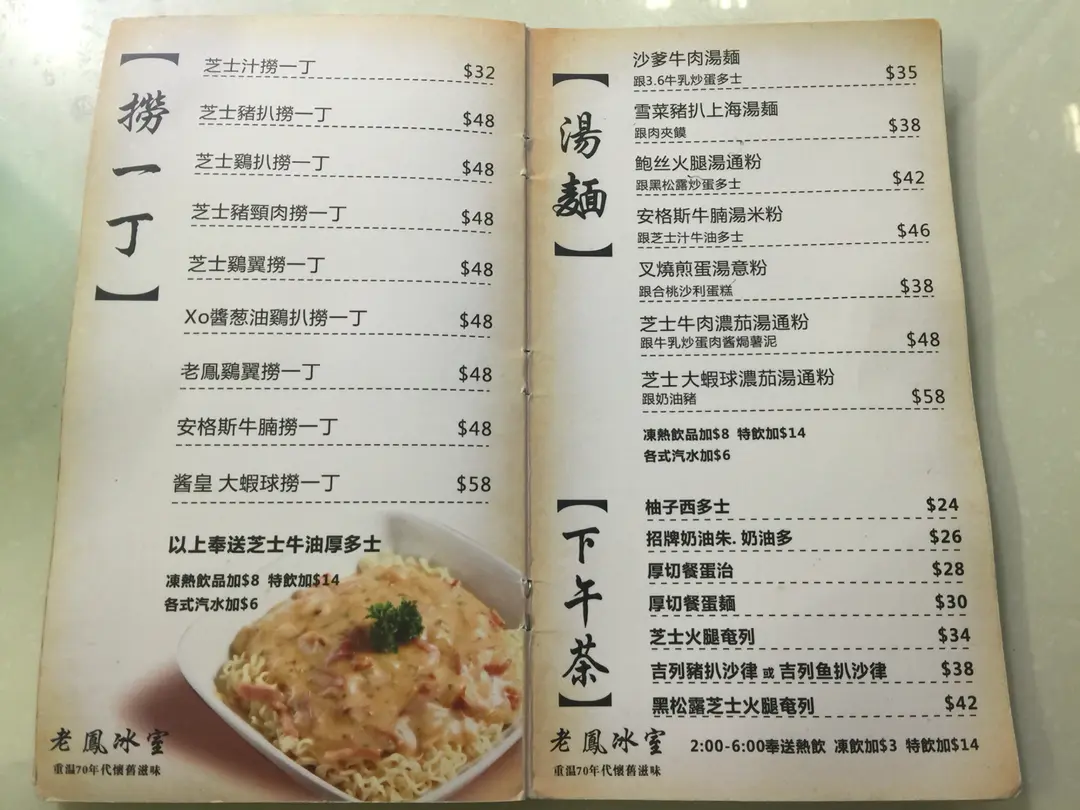 【撈一丁】
芝士汁撈一丁 $32
芝士豬扒撈一丁 $48
芝士鷄扒撈一丁 $48
芝士豬頸肉撈一丁 $48
芝士鷄翼撈一丁 $48
Xo醬葱油鷄扒撈一丁 $48
老鳳鷄翼撈一丁 $48
安格斯牛腩撈一丁 $48
酱皇 大蝦球撈一丁 $58
以上奉送芝士牛油厚多士
凍熱飲品加$8 特飲加$14
各式汽水加$6
老鳳冰室
重温70年代懷舊滋味
【湯麵】
沙爹牛肉湯麵 $35
跟3.6牛乳炒蛋多士
雪菜豬扒上海湯麵 $38
跟肉夾饃
鲍丝火腿湯通粉 $42
跟黑松露炒蛋多士
安格斯牛腩湯米粉 $46
跟芝士汁牛油多士
叉燒煎蛋湯意粉 $38
跟合桃沙利蛋糕
芝士牛肉濃茄湯通粉 $48
跟牛乳炒蛋肉酱焗薯泥
芝士大蝦球濃茄湯通粉 $58
跟奶油豬
凍熱飲品加$8 特飲加$14
各式汽水加$6
【下午茶】
柚子西多士 $24
招牌奶油朱. 奶油多 $26
厚切餐蛋治 $28
厚切餐蛋麵 $30
芝士火腿奄列 $34
吉列豬扒沙律 或 吉列鱼扒沙律 $38
黑松露芝士火腿奄列 $42
老鳳冰室
重温70年代懷舊滋味
2:00-6:00奉送熱飲 凍飲加$3 特飲加$14